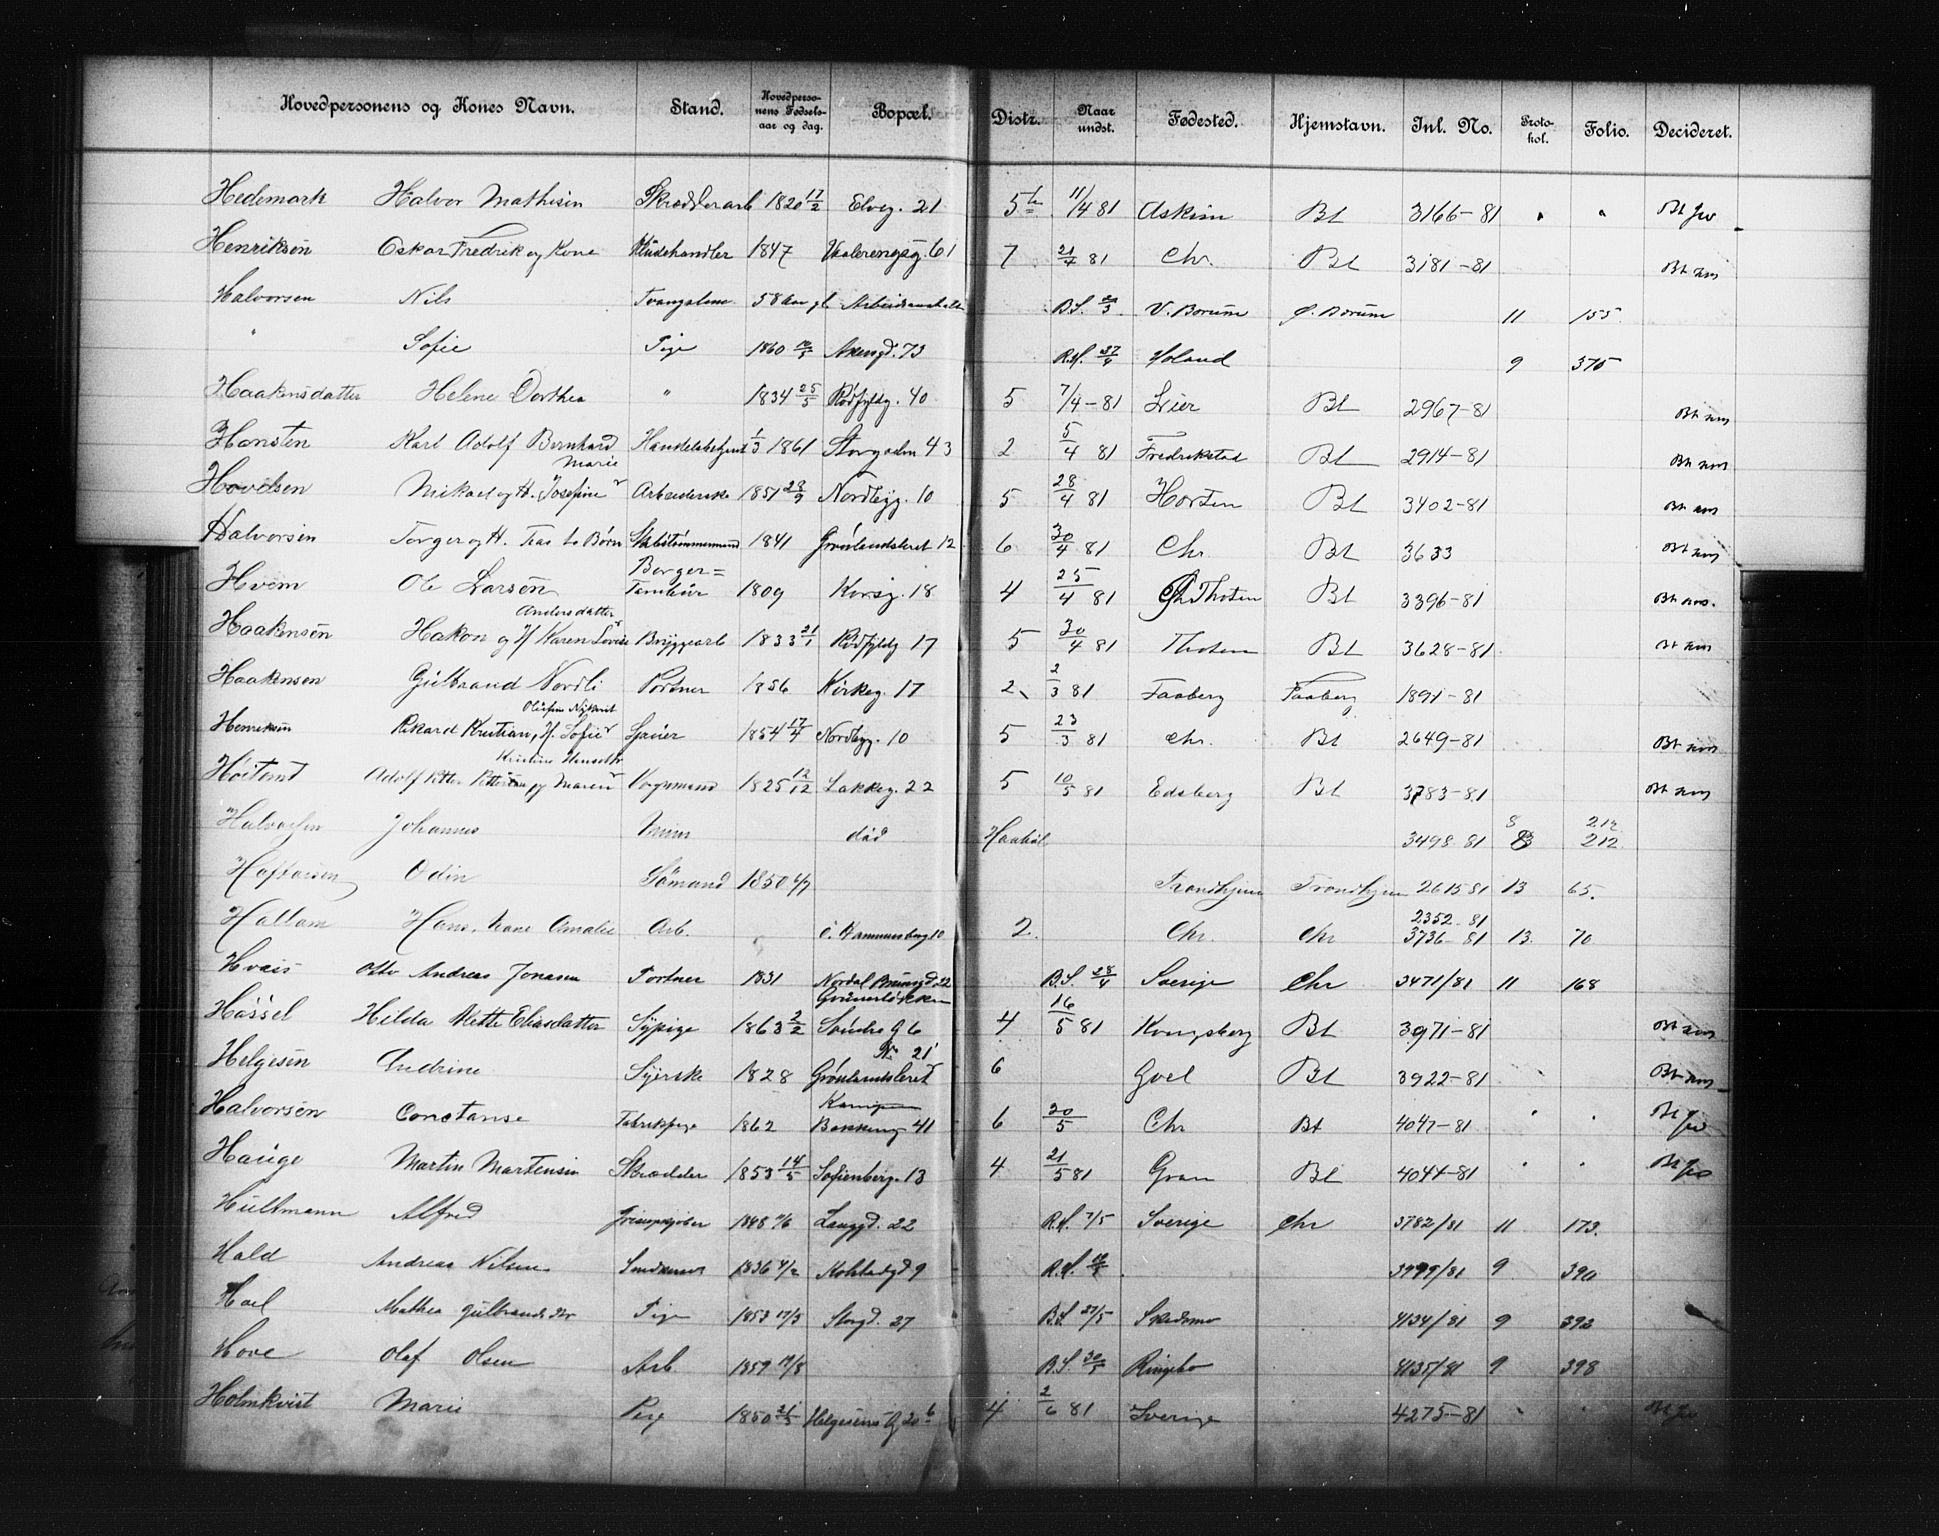 Hovedpersonens og Kones Navn. Stand. Hovedpersonens Fødselsaar og dag. Bopæl. Distr. Naar undst. Fødested. Hjemstavn. Inl. No. Protokol. Folio. Decideret.
Hedemark Halvor Mathisen Skrædderarb 1820 17/2 Elveg. 21 5 11/4 81 Askim Bt 3166-81 " " Bt
Henriksen Oskar Fredrik og Kone Kludehandler 1847 Vaalerengsg. 61 7 21/4 81 Chr. Bt 3181-81 Bt
Halvorsen Nils Tvangslem 58 Aar gl. B.S. V. Borum Ø. Borum 11 155
" Sofie Pige 1860 Akersgd. 73 R.H. 27/4 Høland 9 375
Haakensdatter Helene Dorthea " 1834 25/5 Rødfyldg. 40 5 7/4-81 Lier Bt 2967-81 Bt
Hansten Karl Adolf Bernhard Handelsbetjent 1/3 1861 Storgaden 43 2 5/4 81 Fredrikstad Bt 2914-81 Bt
Marie
Hovelsen Mikael og H. Josefine Arbeiderske 1851 23/9 Nordbyg. 10 5 28/4 81 Horten Bt 3402-81 Bt
Halvorsen Torger og H. Skibstømmermand 1841 Grønlandsleret 12 6 30/4 81 Chr Bt 3633 Bt
Borger=
Hvem Ole Larsen Tambur 1809 Korsg. 18 4 25/4 81 Thoten Bt 3396-81 Bt
Andersdatter
Haakensen Hakon og H Karen Lovise Bryggearb 1833 21/1 Rødfyldg 17 5 30/4 81 Thoten Bt 3628-81 Bt
Haakensen Gulbrand Nordli Portner 1856 Kirkeg. 17 2 2/3 81 Faaberg Faaberg 1891-81
Henriksen Rikard Kristian, H. Sofie 1854 17/4 Nordbyg. 10 5 23/3 81 Chr. Bt 2649-81 Bt
Høitomt Adolf Petter og Maren Vognmand 1825 12/12 Lakkeg. 22 5 10/5 81 Edsberg Bt 3783-81 Bt
Halvorsen Johannes Murer død Haabøl 3498 81 8 212
Haftorsen Odin Sømand 1850 Trondhjem Trondhjem 2615 81 13 65.
2352-81
Hallam Hans, Kone Amalie Arb. 10 2 Chr. Chr 3736-81 13. 70
Hvais Otto Andreas Jonassen Portner 1831 Nordal Brunsgd. 22 B.S. 28/4 Sverige Chr 3471/81 11 168
Grünerløkken
Hassel Hilda Mette Eliasdatter Sypige 1863 2/2 Søndre G 6 4 16/5 81 Kongsberg Bt 3971-81 Bt
N. 21
Helgesen Andrine Syerske 1828 Grønlandsleret 6 Goel Bt 3922-81 Bt
Kampen
Halvorsen Constanse Fabrikpige 1862 Bakkeng 41 6 20/5 Chr Bt 4047-81 Bt
Hauge Martin Martensen Skrædder 1853 14/5 Sofienberg. 13 4 21/5 81 Gran Bt 4044-81 Bt
Hultmann Alfred 1848 Langgd. 22 R.H. 7/5 Sverige Chr 3782/81 11 173.
Hald Andreas Nilsen 1836 9 R.H. 3999/81 9 390
Hoel Mathea Gulbrandsdtr Pige 1853 17/3 Storgd. 27 B.S. 27/5 Skedsmo 4134/81 9 392
Hove Olaf Olsen Arb. 1859 B.S. 30/5 Ringebo 4135/81 9 398
Holmkvist Marie Pige 1850 21/5 Helgesens G 20 4 2/6 81 Sverige 4275-81 Bt